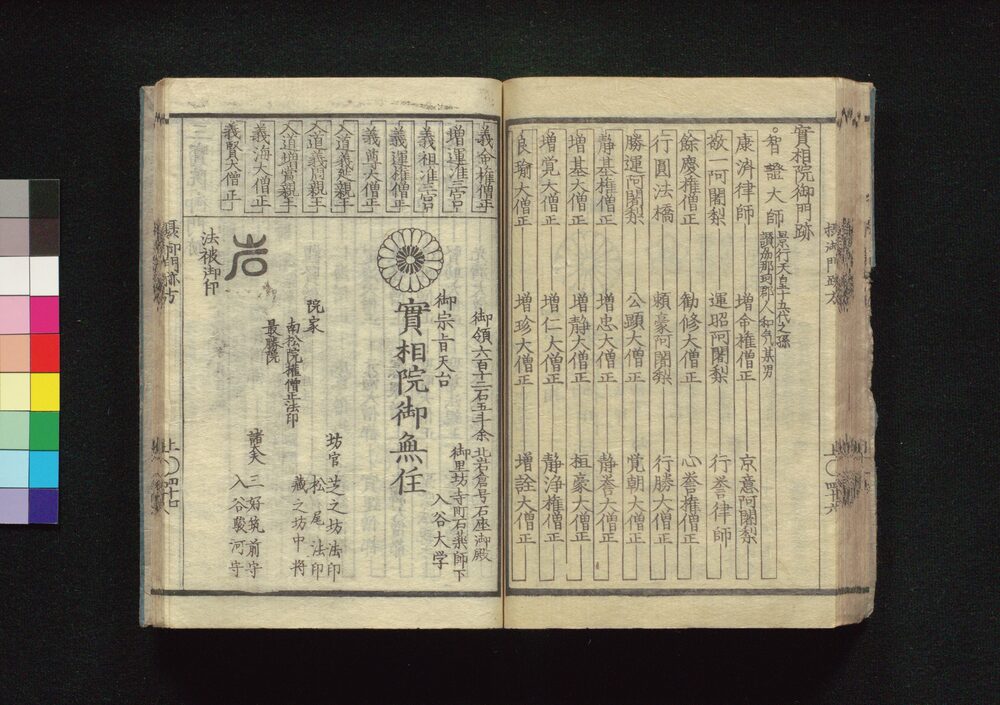 實相院御門跡
智證大師
景行天皇十五代之孫
讃岐那珂郡人和気某男
康済律師
増命権僧正
京意阿闍梨
敬一阿闍梨
運昭阿闍梨
行誉律師
餘慶権僧正
勧修大僧正
心誉権僧正
行圓法橋
頼豪阿闍梨
行勝大僧正
勝運阿闍梨
公顕大僧正
覚朝大僧正
静基権僧正
増忠大僧正
静誉大僧正
増基大僧正
増静大僧正
桓豪大僧正
増覚大僧正
増仁大僧正
静浄権僧正
良瑜大僧正
増珍大僧正
増詮大僧正
義命権僧正
増運准三宮
義祖准三宮
義運権僧正
義尊大僧正
入道義延親王
入道義周親王
入道増賞親王
義海大僧正
義賢大僧正
御領六百十二石五斗余
北岩倉号石座御殿
御里坊寺町石薬師下
入谷大学
御宗旨天台
實相院御無住
院家
南松院権僧正法印
最勝院
坊官
芝之坊法印
松尾法印
蔵之坊中将
諸大夫
三好筑前守
入谷駿河守
法被御印
摂御門跡方
上〇四十六
摂御門跡方
上〇四十七